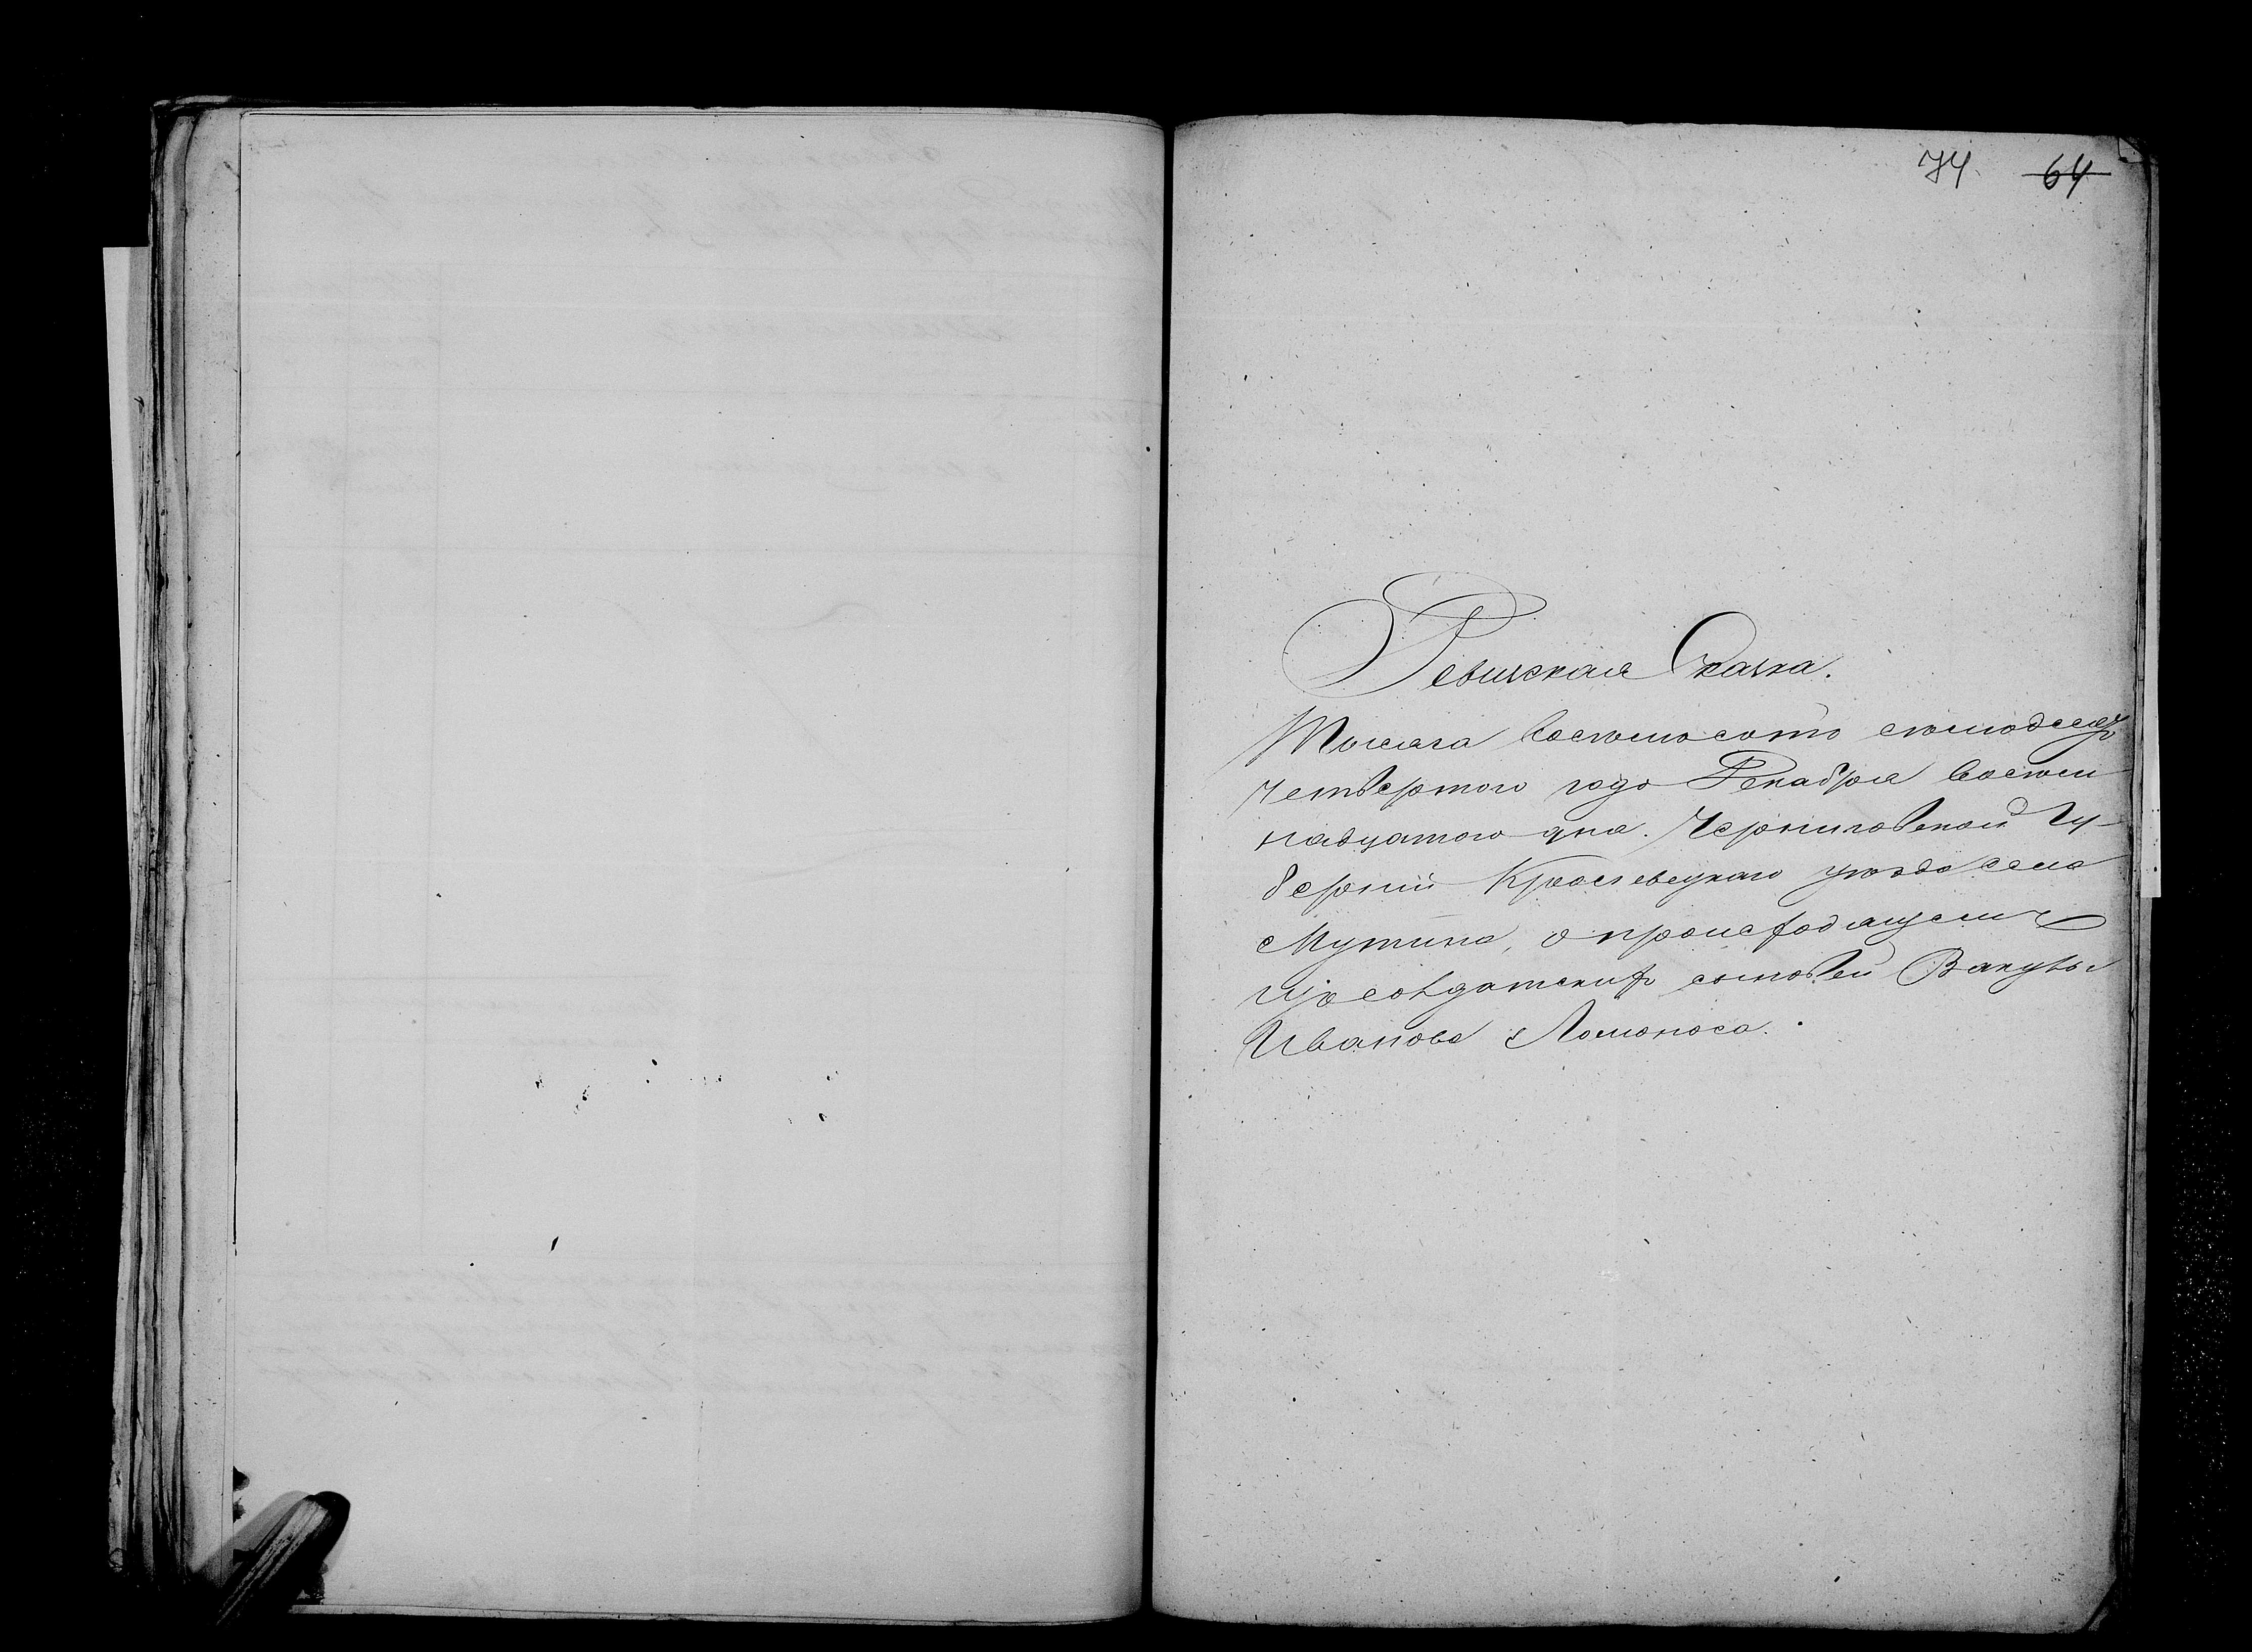 74. 64
Ревизская Сказка.
Тысяча восемьсотъ семьдесятъ
четвертого года Декабря восем
надцатого дня. Черниговской Гу-
берніи Кролевецкаго уезда села
Мутина, о происходящемъ
изъ солдатскихъ сыновей Вакулы
Иванове Ломоноса.